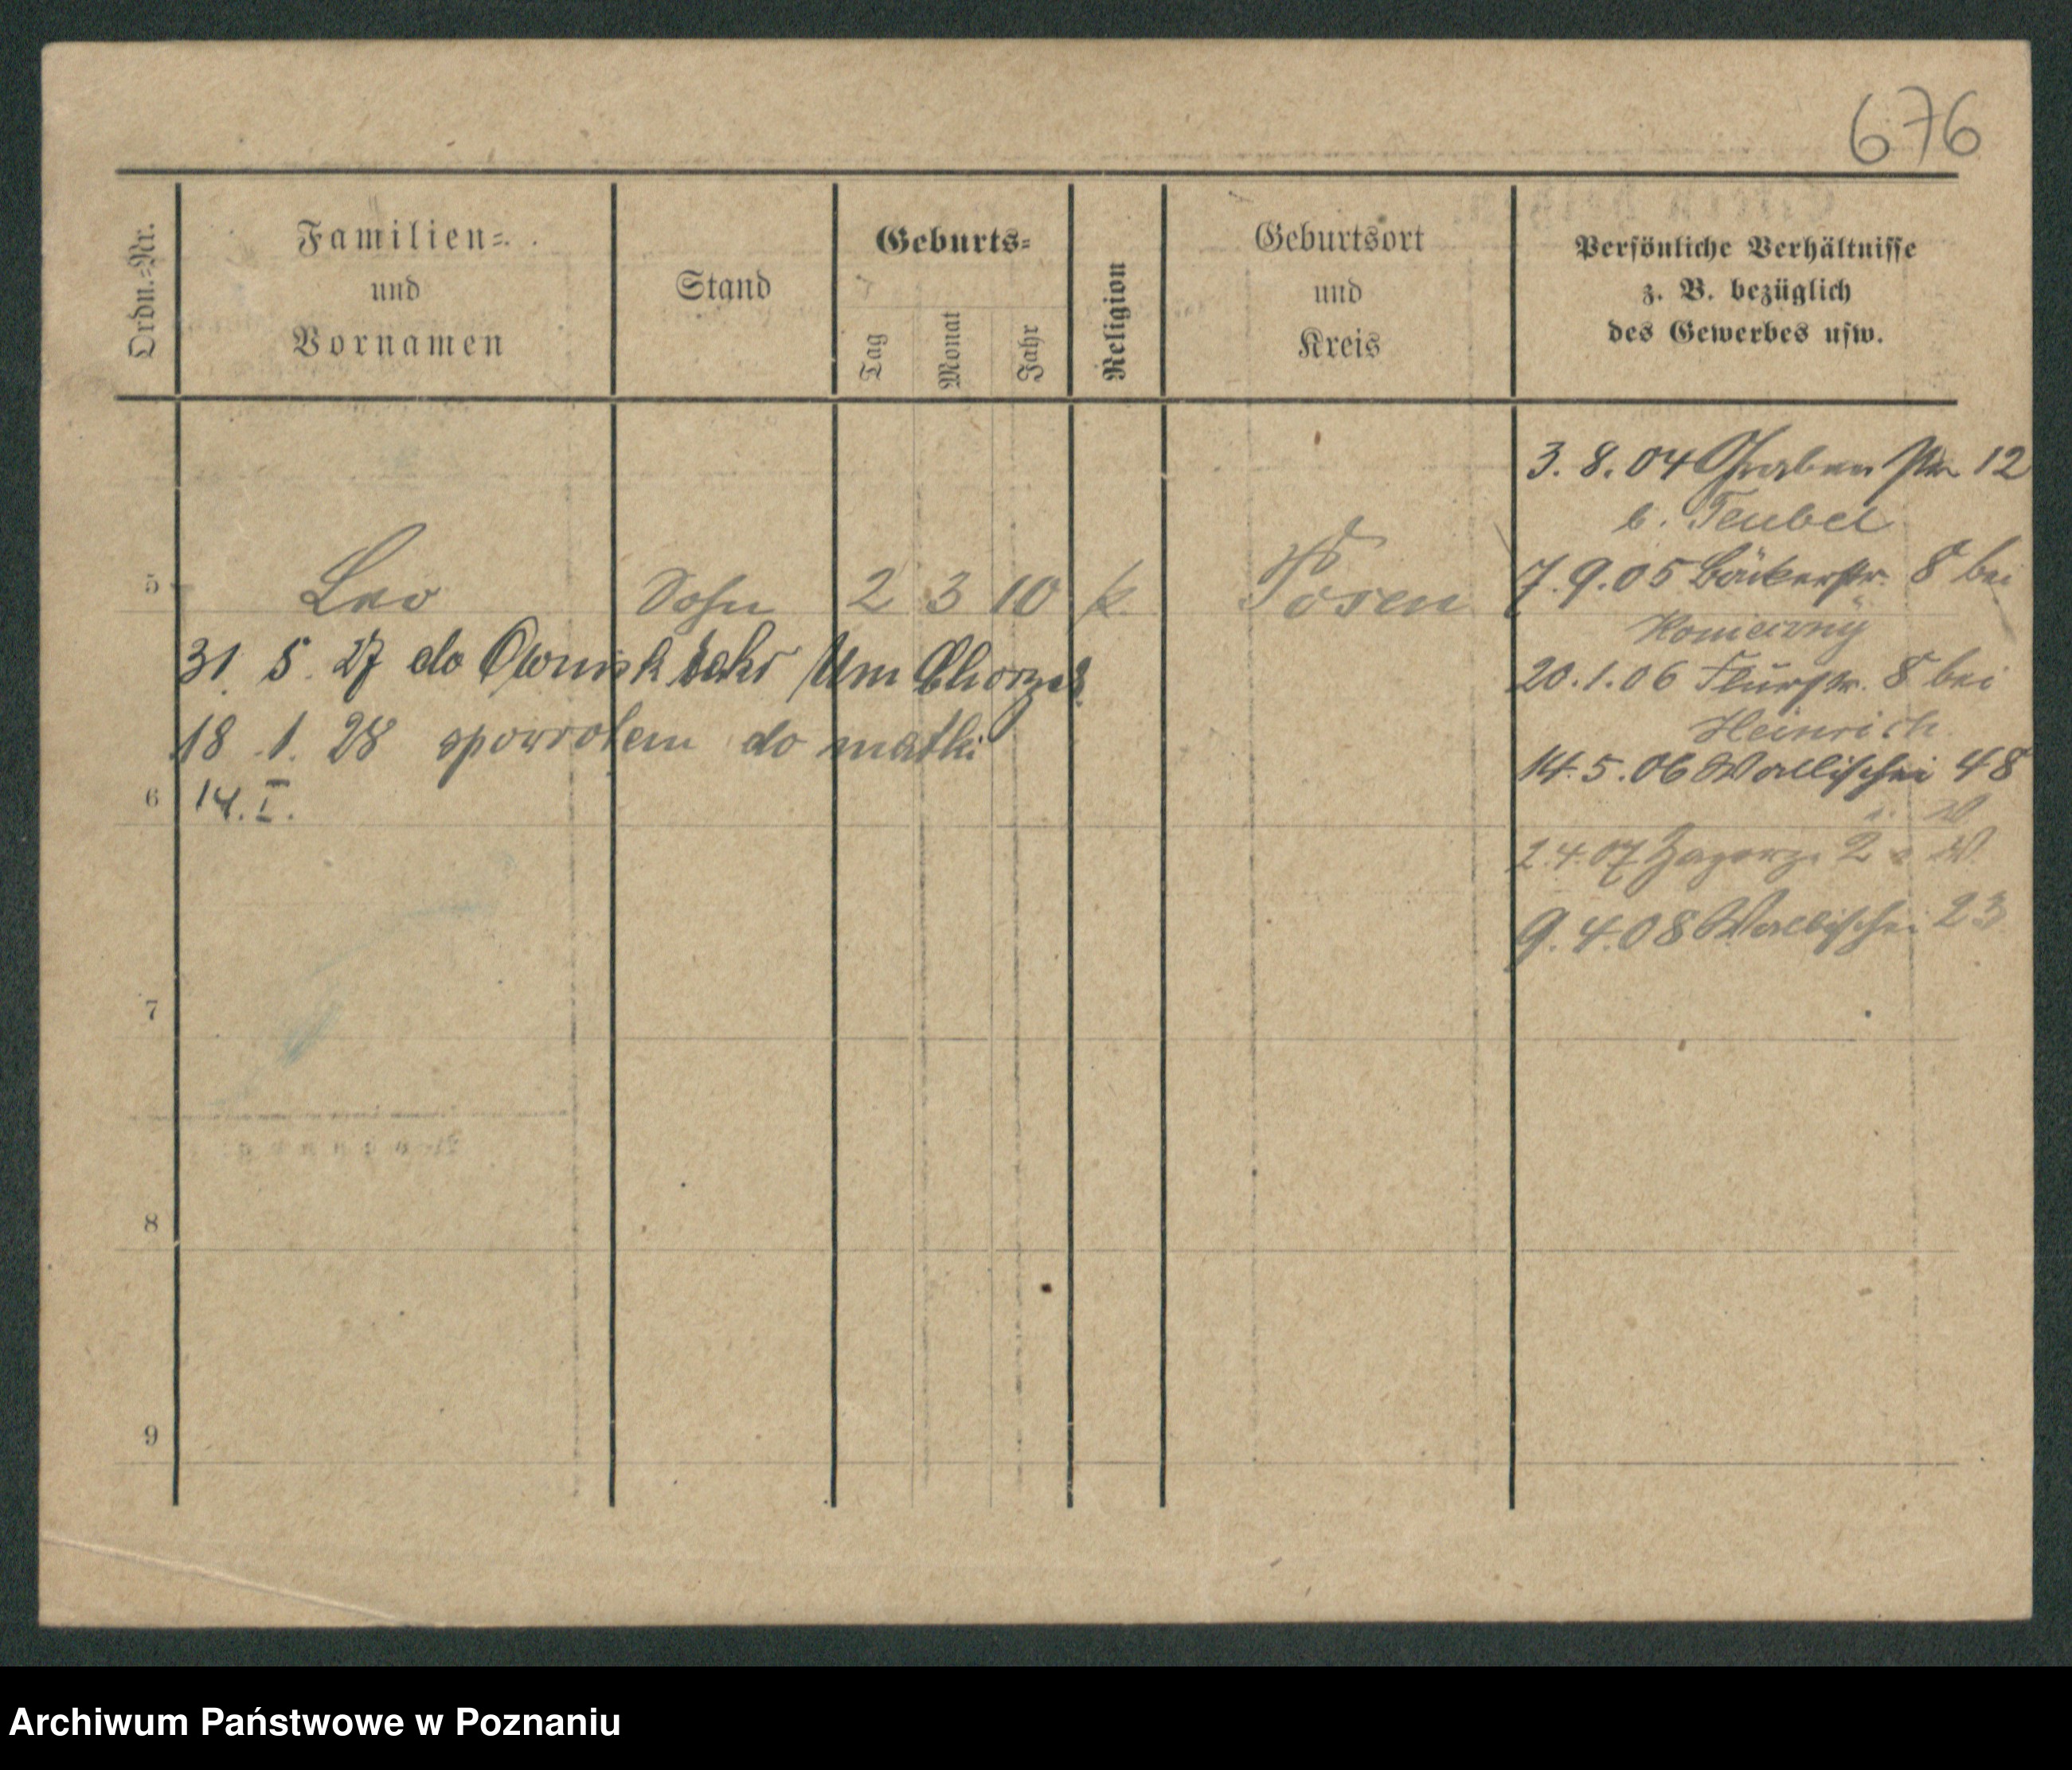 676
Ordn.-Nr.
Familien-
und
Vornamen
Stand
Geburts-
Tag
Monat
Jahr
Religion
Geburtsort
und
Kreis
Persönliche Verhältnisse
z. B. bezüglich
des Gewerbes usw.
3. 8. 04 Graben str 12
b. Teubel
5 Leo Sohn 2 3 10 k Posen
7. 9. 05 Bäckerstr. 8 bei
31. 5. 27 do Owinsk
20. 1. 06 Flurstr. 8 bei
Heinrich
18. 1. 28 spowrotem do matki
14. 5. 06 Wallischei 48
6 14. I.
2. 4. 07 Zagorze 2
9. 4. 08 Wallischei 23
7
8
9
Archiwum Państwowe w Poznaniu